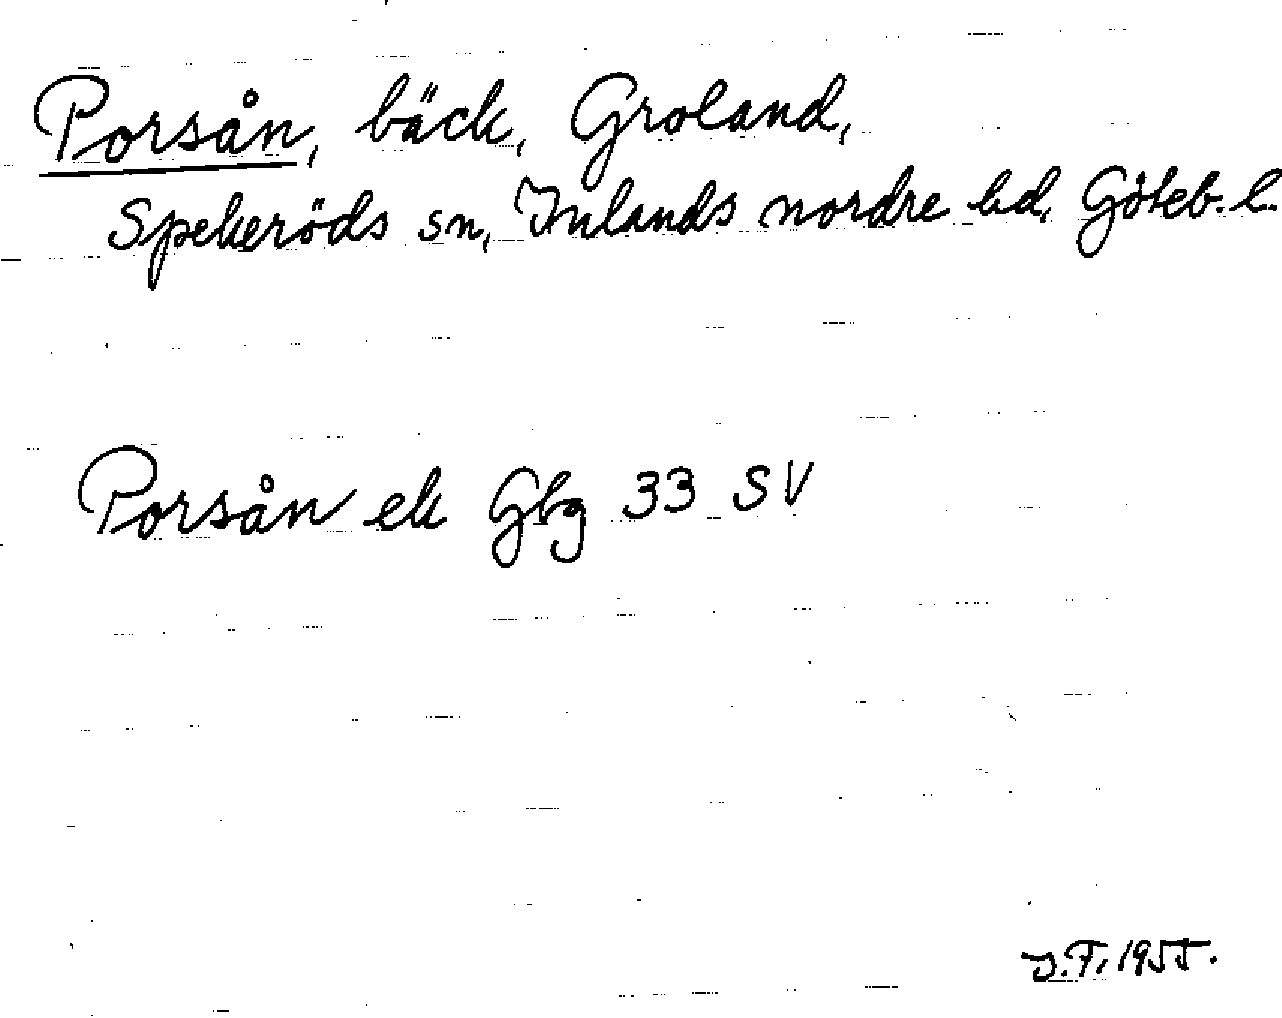 Porsån, bäck, Groland,
Spekeröds sn, Inlands nordre hd, Göteb. l.
Porsån ek Gbg 33 SV
J.F. 1955.